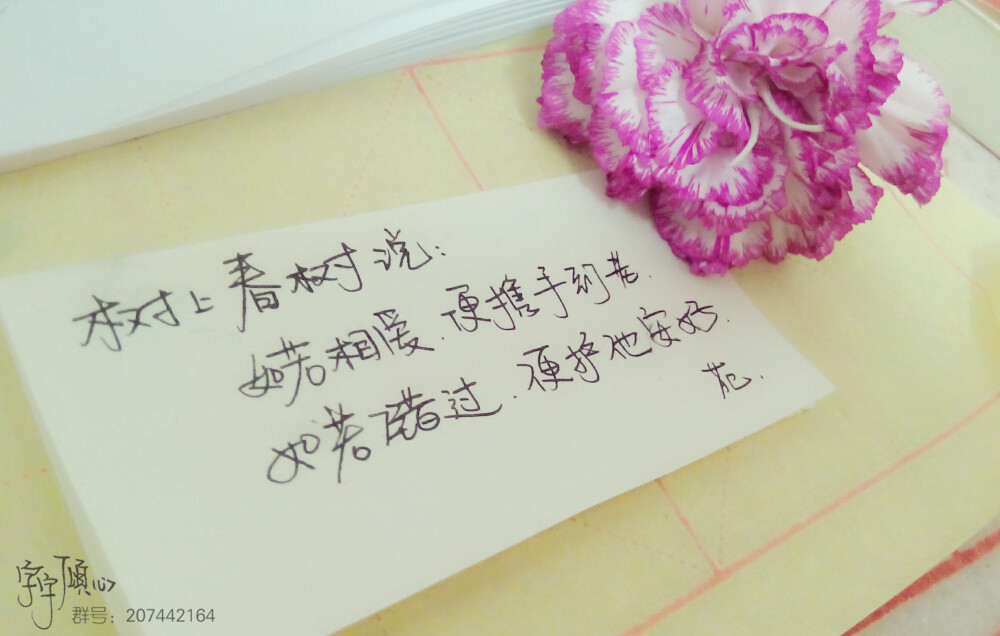 树上春树说：
如若相爱.便携手到老.
如若错过.便护他安好.
群号：207442164